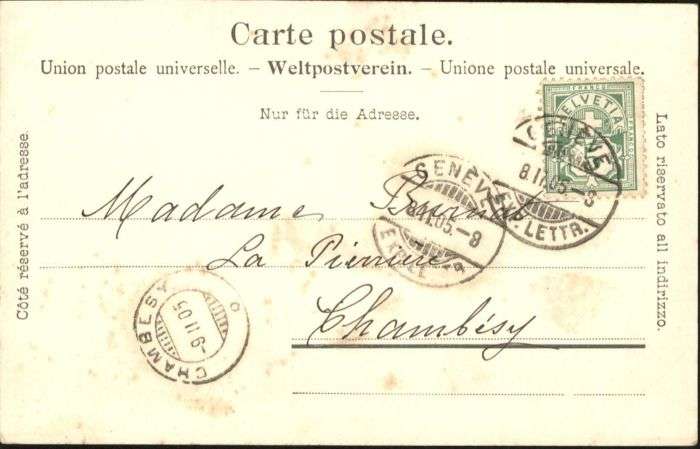 Carte postale.
Union postale universelle. – Weltpostverein. – Unione postale universale.
Nur für die Adresse.
Côté réservé à l'adresse.
Lato riservato all indirizzo.
FRANCO
HELVETIA
GENÈVE
8.II.05.-8
EXP. LETTR.
GENÈVE
8.II.05.-8
EXP. LETTR.
Madame
La
Chambésy
CHAMBÉSY
-9 II 05